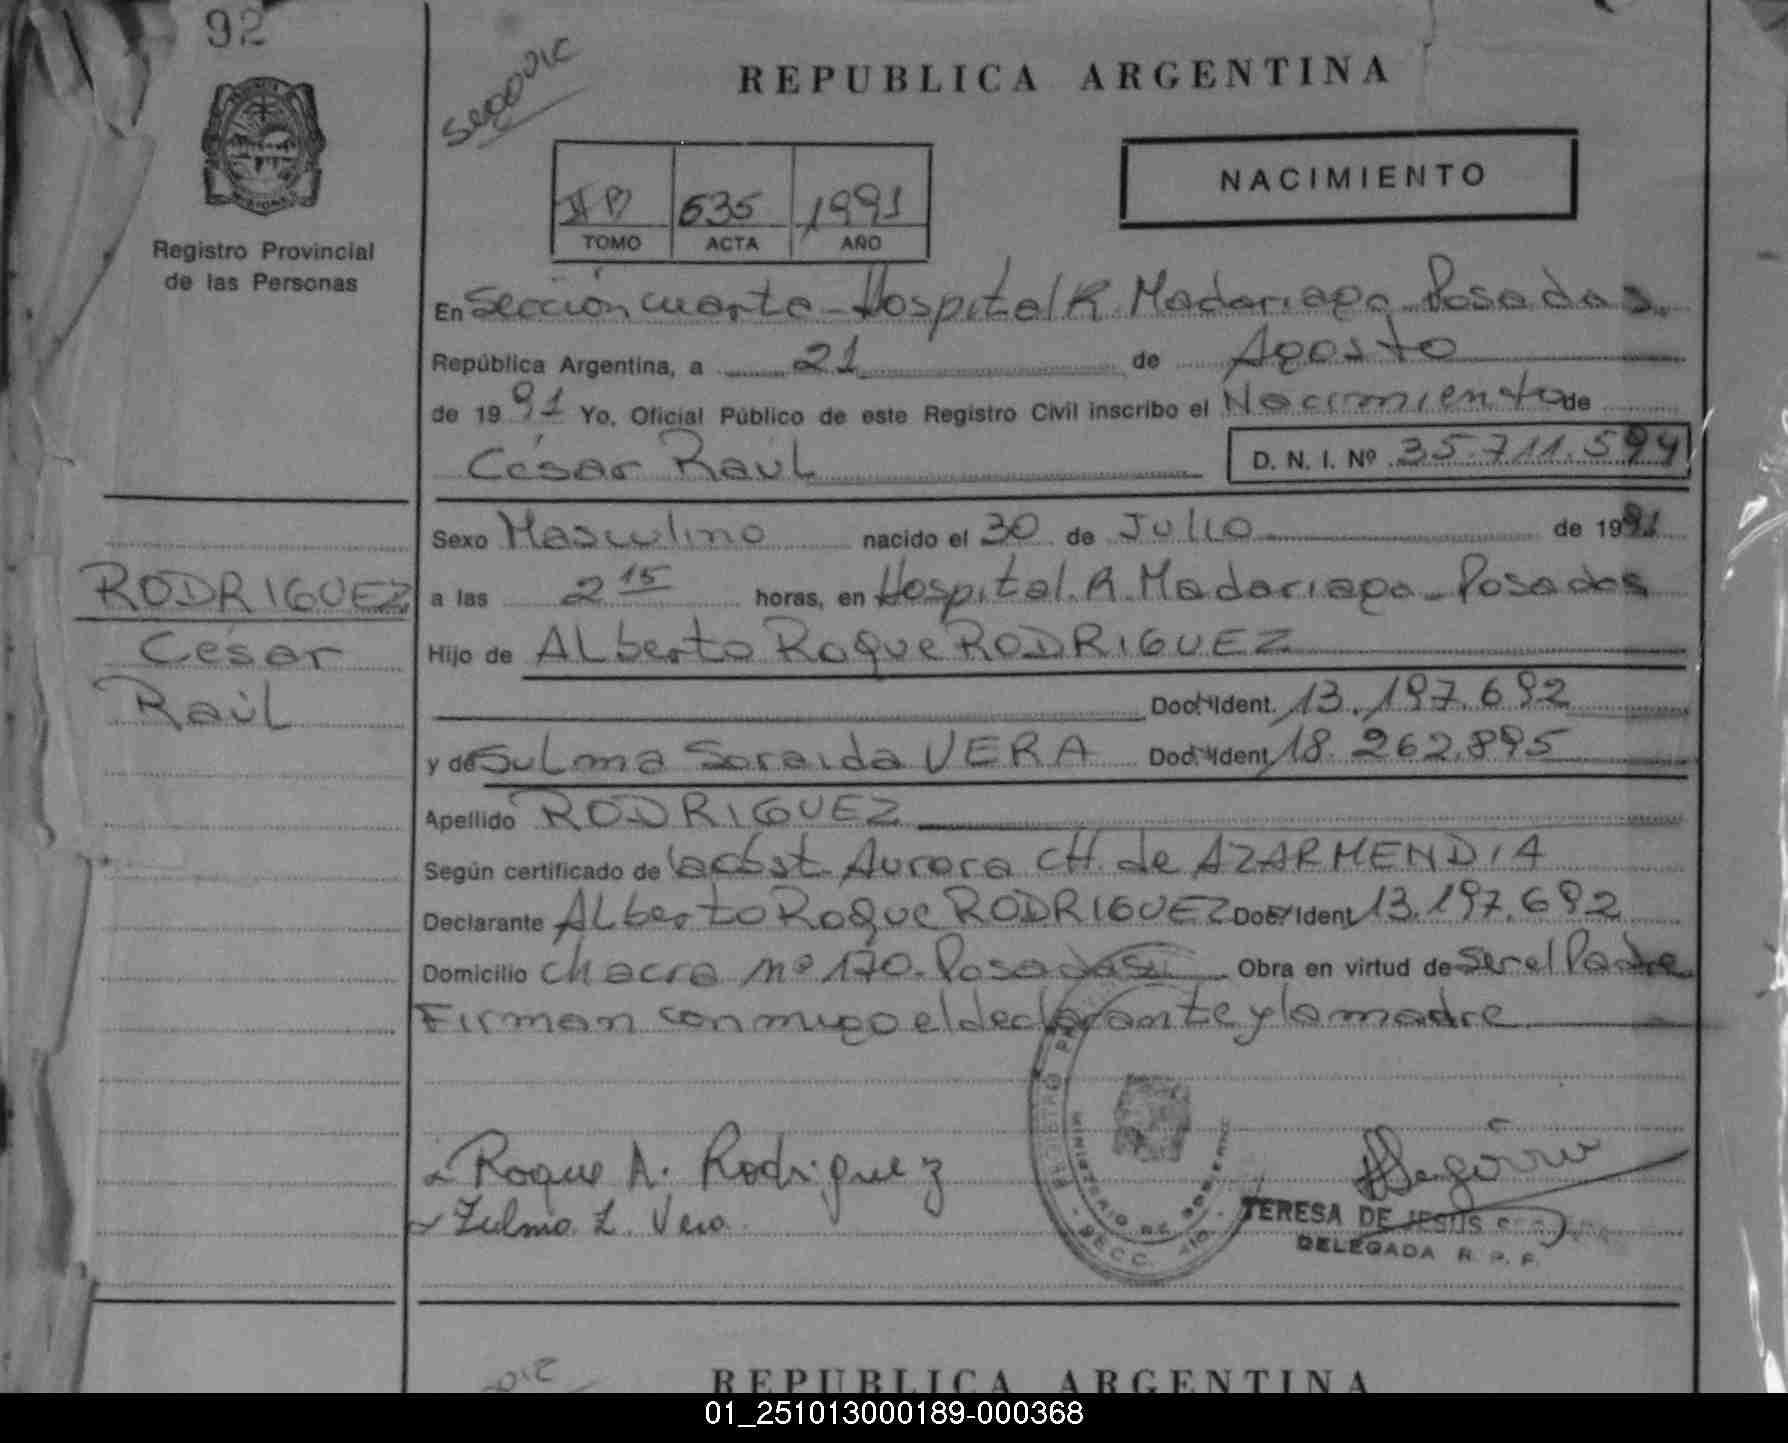 92
REPUBLICA ARGENTINA
NACIMIENTO
635 1991
TOMO ACTA AÑO
Registro Provincial
de las Personas
En Sección cuarta - Hospital R. Madariaga Posadas.
República Argentina, a 21 de Agosto
de 1991 Yo, Oficial Público de este Registro Civil inscribo el Nacimiento de
César Raúl D. N. I. Nº 35.711.594
Sexo Masculino nacido el 30 de Julio de 1991
RODRIGUEZ
César
Raúl
a las 2 15 horas, en Hospital R. Madariaga - Posadas
Hijo de ALberto Roque RODRIGUEZ
Doc. Ident. 13.197.692
y de Sulma Soraida VERA Doc. Ident. 18.262.895
Apellido RODRIGUEZ
Según certificado de la obst. Aurora CH. de AZARMENDIA
Declarante ALberto Roque RODRIGUEZ Doc. Ident. 13.197.692
Domicilio chacra nº 170. Posadas Obra en virtud de ser el Padre
Firman conmigo el declarante y la madre
Roque A. Rodriguez
Zulma Z. Vera
REGISTRO
MINISTERIO DE GOBIERNO
SECC.
TERESA DE JESUS
DELEGADA R. P. P.
REPUBLICA ARGENTINA
01_251013000189-000368